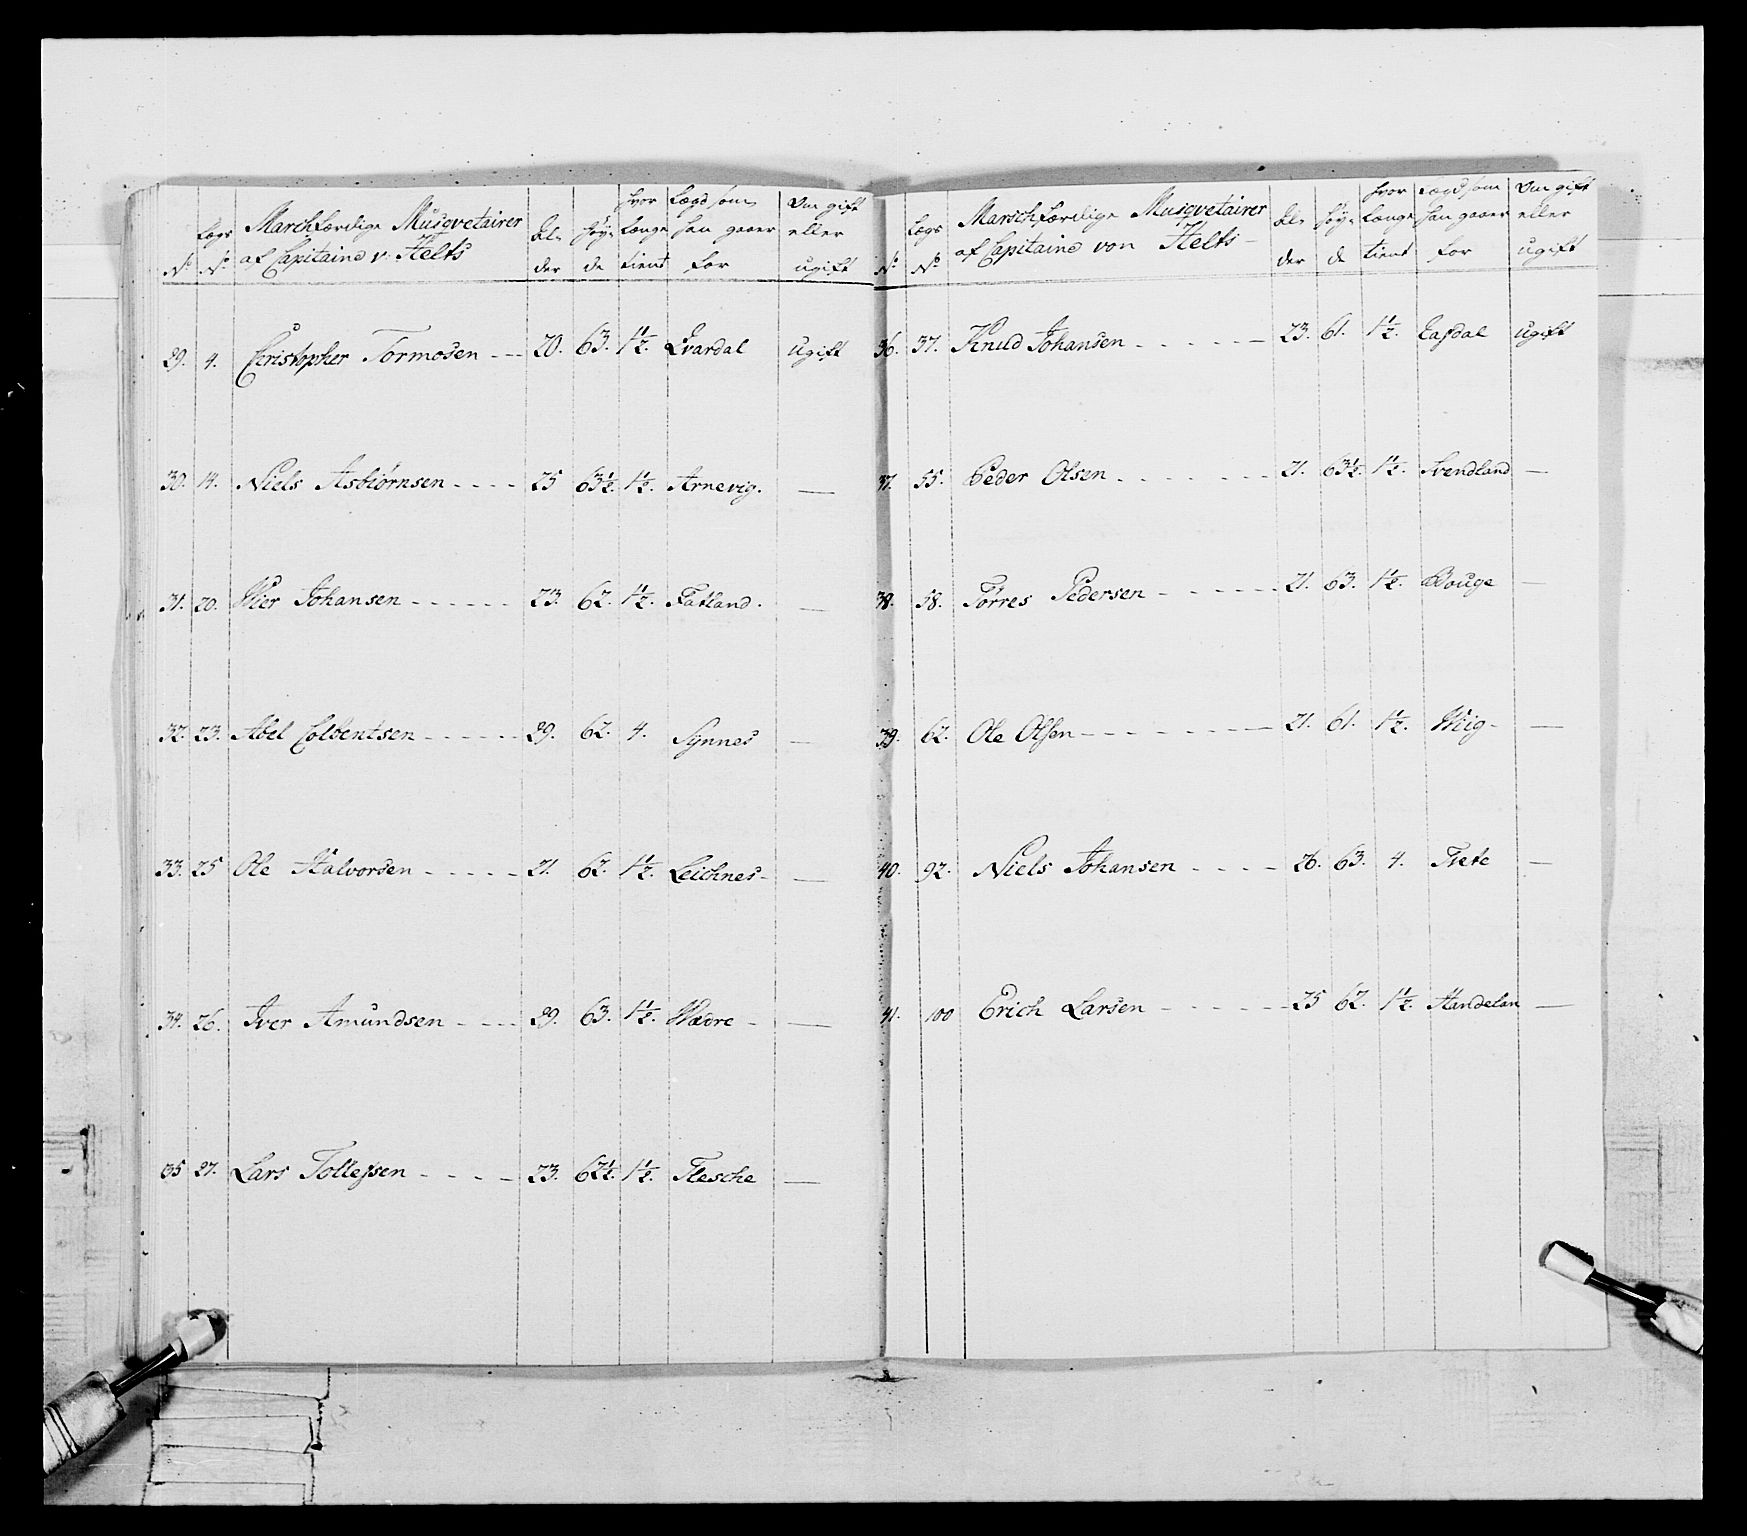 Lægs Marchfærdige Musqvetairer Al- Høy- hvor Lægd som Om gift
No No af Capitaine v. Helts der de længe han gaaer eller
tient for ugift
29. 4. Christopher Tormosen --- 20. 63. 1½. Qvardal Ugift
30. 14. Niels Asbiørnsen ---- 25 63½. 1½. Arnevig. —
31. 20. Johansen ------ 23. 62. 1½. Fatland. —
32. 23. Abel Colbentsen ------ 29. 62. 4. Synnes —
33. 25 Ole Halvorsen ----- 21. 62. 1½. Leichnes- —
34. 26. Iver Amundsen ---- 29. 63. 1½. Wædre - —
35 27. Lars Tollefsen ----- 23. 62½. 1½. Flesche —
Lægs Marschfærdige Musqvetairer Al- Høy- hvor Lægd som Om gift
No No af Capitaine von Helts - der de længe han gaaer eller
tient for ugift
36. 37. Knud Johansen ------- 23. 61. 1½. Ugift
37. 55. Peder Olsen ------- 21. 63½. 1½. Svendland —
38. 58. Tørres Pedersen ------ 21. 63. 1½. Bouge —
39. 62. Ole Olsen -------- 21. 61. 1½. Wiig- —
40. 92. Niels Johansen ---- 26. 63. 4. Tiete —
41. 100 Erich Larsen ------ 25 62. 1½. Handelan —